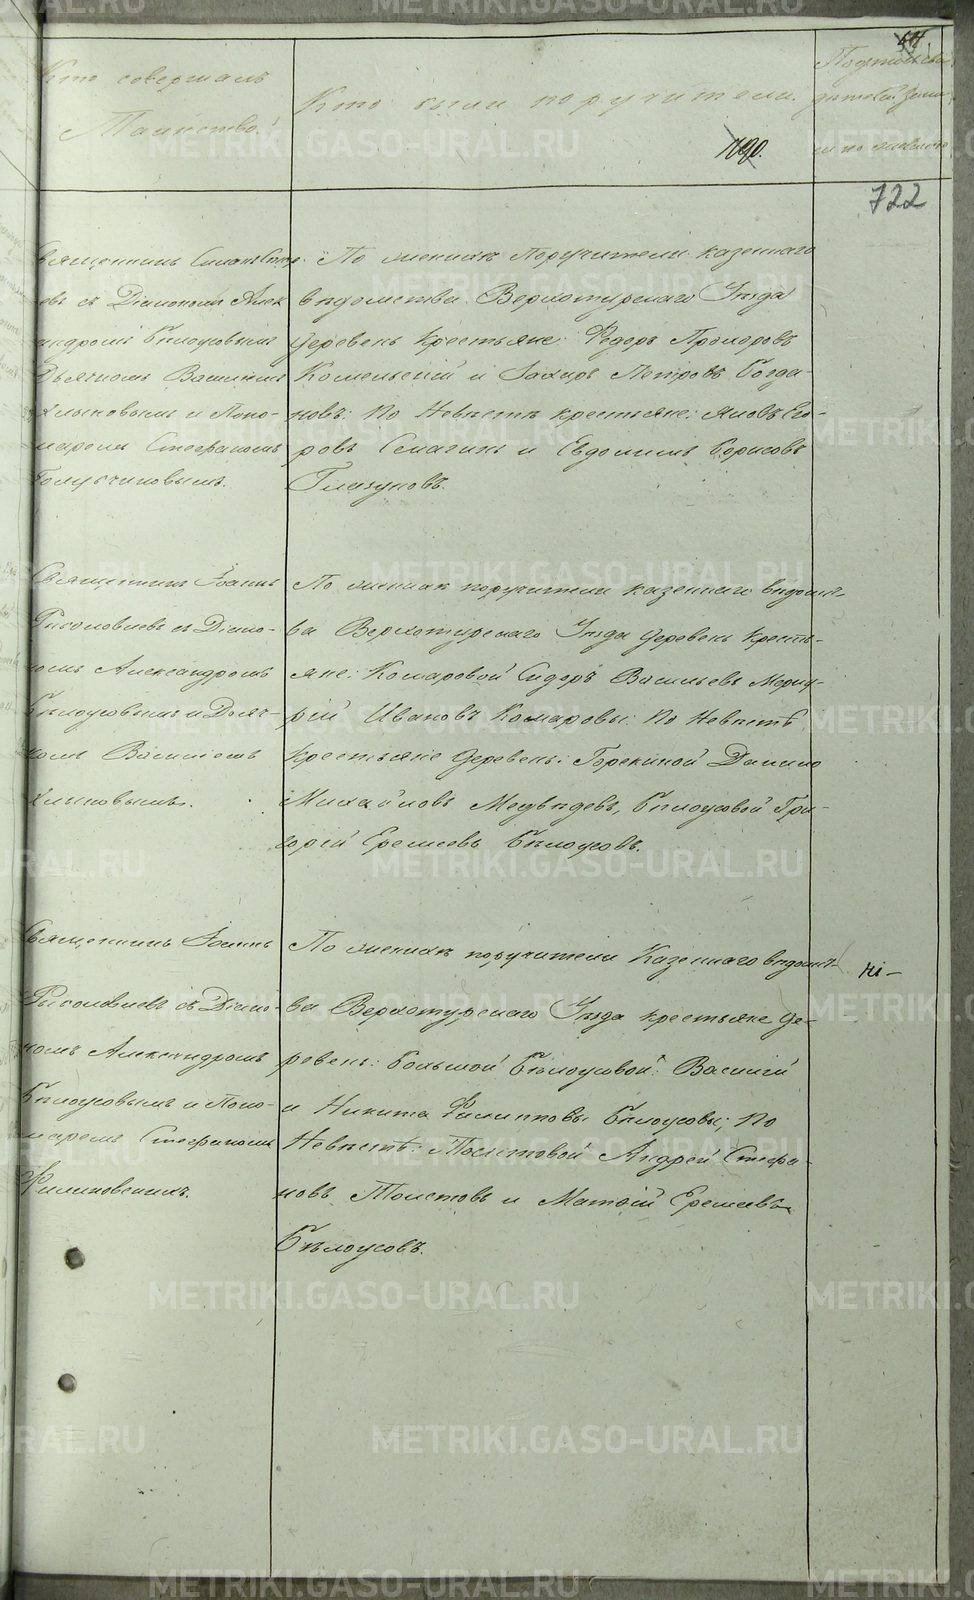 Кто совершалъ
Таинство.
Кто были поручители.
722
Священникъ
евъ съ Діакономъ Алек
андромъ Бѣлоусовымъ
Дьячкомъ Василіемъ
Хлыновымъ и Поно-
маремъ Стефаномъ
По женихѣ Поручители казеннаго
вѣдомства Верхотурскаго Уѣзда
деревень крестьяне: Ѳедоръ Прохоровъ
и Захаръ Петровъ Богда-
новъ: по Невѣстѣ крестьяне: Яковъ Его-
ровъ Семагинъ и Евдокимъ Борисовъ
Глазуновъ.
Священникъ Іоаннъ
съ Діако-
номъ Александромъ
Бѣлоусовымъ и Дьяч-
комъ Василіемъ
Хлыновымъ.
По женихѣ поручители казеннаго вѣдомст-
ва Верхотурскаго Уѣзда деревень кресть-
яне: Комаровой Сидоръ Васильевъ Мерку-
рій Ивановъ Комаровы: по Невѣстѣ
крестьяне деревень: Горскиной Данило
Михайловъ Медвѣдевъ, Бѣлоусовой Гри-
горій Еремѣевъ Бѣлоусовъ.
Священникъ Іоаннъ
съ Діако-
номъ Александромъ
Бѣлоусовымъ и Поно-
маремъ Стефаномъ
По женихѣ поручители Казеннаго вѣдомст-
ва Верхотурскаго Уѣзда крестьяне де-
ревень: Большой Бѣлоусовой: Василій
и Никита Филипповы Бѣлоусовы; по
Невѣстѣ: Толстовой Андрей Стефа-
новъ Толстовъ и Матѳій Еремѣевъ
Бѣлоусовъ.
METRIKI.GASO-URAL.RU